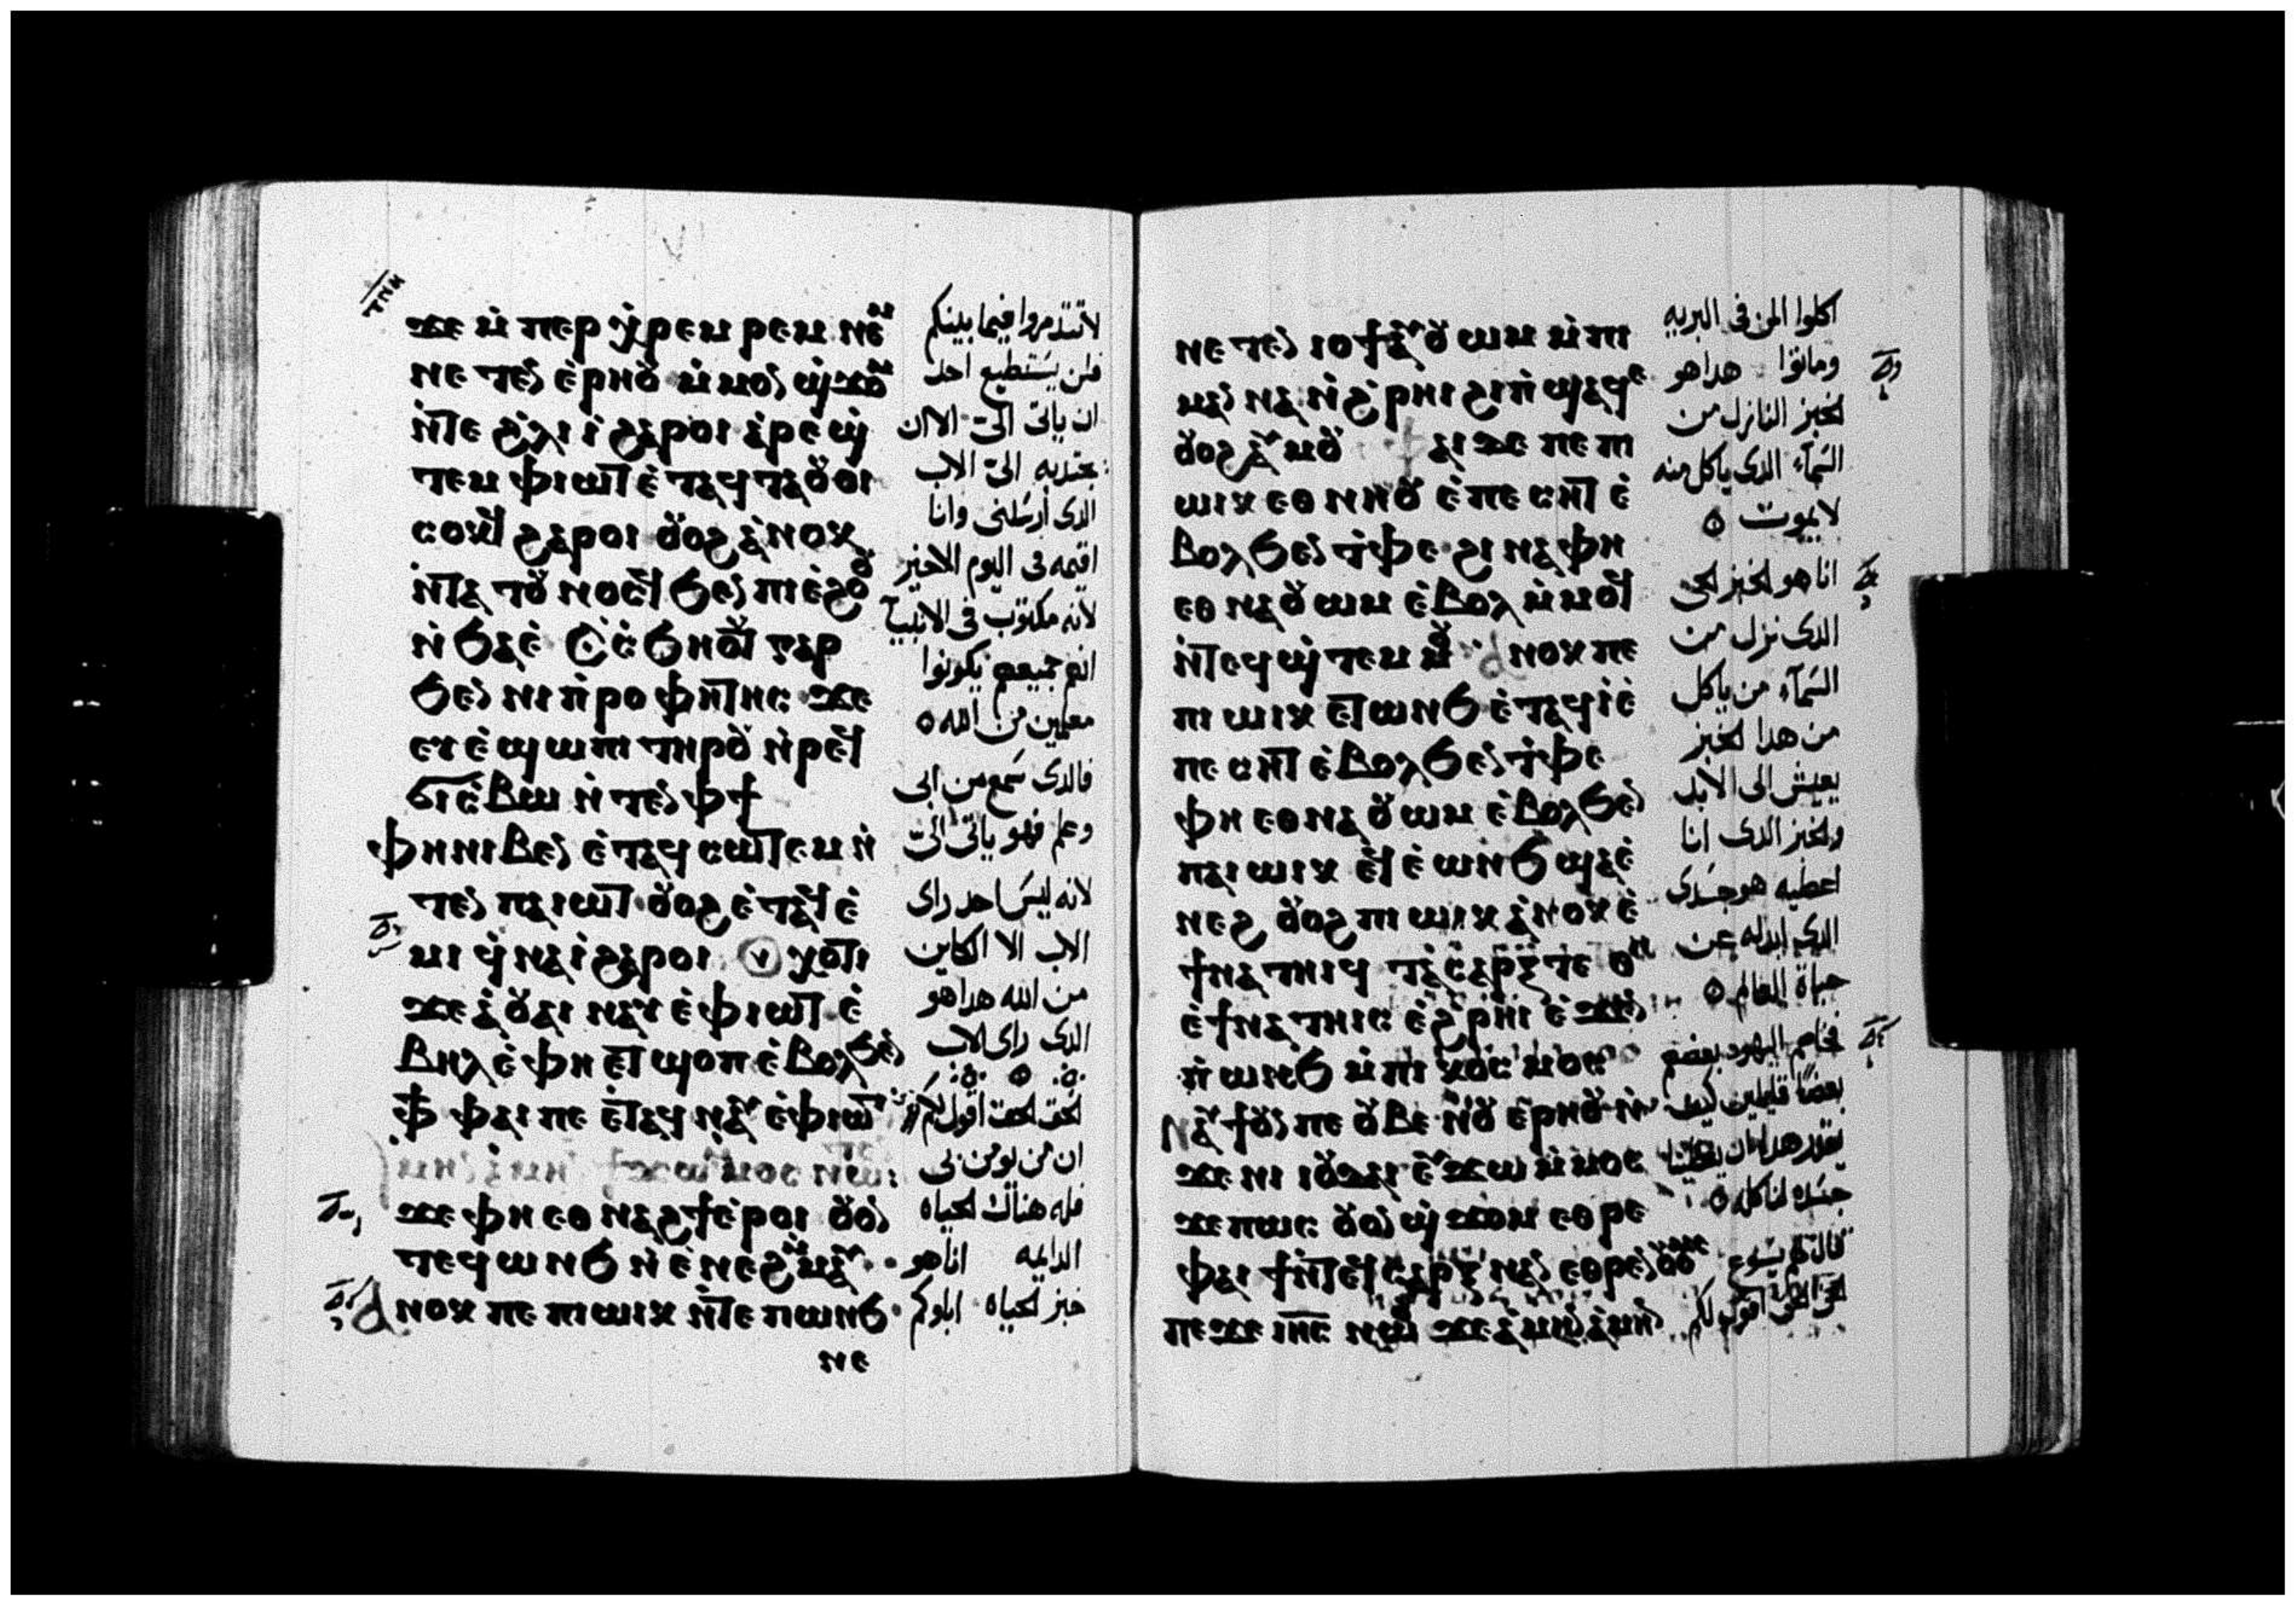 ϫⲉ ⲙ̇ⲡⲉⲣ ⲭ̇ⲣⲉⲙⲣⲉⲙ ⲛⲉⲙ
ⲛⲉⲧⲉⲛ ⲉ̇ⲣⲏⲟⲩ ⲙ̇ⲙⲟⲛ ϣ̇ϫⲟⲙ
ⲛ̇ⲧⲉ ϩ̇ⲗⲓ ⲓ̇ ϩⲁⲣⲟⲓ ⲁ̇ⲣⲉϣ̇
ⲧⲉⲙ ⲫⲓⲱⲧ ⲉ̇ⲧⲁϥⲧⲁⲟⲩⲟⲓ
ⲥⲟⲕϥ ϩⲁⲣⲟⲓ ⲟⲩⲟϩ ⲁ̇ⲛⲟⲕ
ⲛ̇ⲧⲁ ⲧⲟⲩⲛⲟⲥϥ ϧⲉⲛ ⲡⲓⲉ̇ϩⲟⲟⲩ
ⲛ̇ϧⲁⲉ̇ ⲥ̇ⲥ̇ϧⲏⲟⲩⲧ ⲅⲁⲣ
ϧⲉⲛ ⲛⲓⲡ̇ⲣⲟⲫⲏⲧⲏⲥ ϫⲉ
ⲉⲩⲉ̇ϣⲱⲡⲓ ⲧⲏⲣⲟⲩ ⲛ̇ⲣⲉϥ
ϭⲓⲥ̇ⲃⲱ ⲛ̇ⲧⲉⲛ ⲫϯ
ⲫⲏ ⲛⲓⲃⲉⲛ ⲉ̇ⲧⲁϥⲥⲱⲧⲉⲙ ⲛ̇
ⲧⲉⲛ ⲡⲁⲓⲱⲧ ⲟⲩⲟϩ ⲉ̇ⲧⲁϥⲉ̇
ⲙⲓ ϥ̇ⲛⲁⲓ̇ ϩⲁⲣⲟⲓ
ϫⲉ ⲁ̇ ⲟⲩⲁⲓ ⲛⲁⲩ ⲉ̇ⲫⲓⲱⲧ ⲉ̇
ⲃⲏⲗ ⲉ̇ⲫⲏ ⲉⲧϣⲟⲡ ⲉ̇ⲃⲟⲗϧⲉⲛ
ⲫϯ ⲫⲁⲓ ⲡⲉ ⲉⲧⲁϥⲛⲁⲩ ⲉ̇ⲫⲓⲱⲧ
ϫⲉ ⲫⲏ ⲉⲑⲛⲁϩϯ ⲉ̇ⲣⲟⲓ ⲟⲩⲟⲛ
ⲧⲉϥ ⲱⲛϧ ⲛ̇ⲉ̇ⲛⲉϩ ⲙ̇ⲙⲁⲩ
ⲁⲛⲟⲕ ⲡⲉ ⲡⲓⲱⲓⲕ ⲛ̇ⲧⲉ ⲡⲱⲛϧ
ⲛⲉ
لاتتذمروا فيما بينكم
فلن يستطيع احد
ان ياتى الىّ الا ان
يجتذبه الىّ الاب
الدى ارسلنى وانا
اقيمه فى اليوم الاخير
لانه مكتوب فى الانبيآ
انهم جميعهم يكونوا
معلمين من الله
فالدى سمع من ابى
وعلم فهو ياتى الىّ
لانه ليس احد راى
الاب الا الكاين
من الله هدا هو
الدى راى الاب
الحق الحق اقول لكم
ان من يومن بى
فله هناك الحياه
الدايمه انا هو
خبز الحياه اباوكم
ⲛⲉⲧⲉⲛ ⲓⲟϯ ⲁⲩⲟⲩⲱⲙ ⲙ̇ⲡⲓ
ⲙⲁⲛⲛⲁ ⲛ̇ϩ̇ⲣⲏⲓ ϩⲓ ⲡ̇ϣⲁϥⲉ
ⲟⲩⲟϩ ⲁⲩⲙⲟⲩ ⲫⲁⲓ ϫⲉ ⲡⲉ ⲡⲓ
ⲱⲓⲕ ⲉⲑⲛⲏⲟⲩ ⲉ̇ⲡⲉⲥⲏⲧ ⲉ̇
ⲃⲟⲗϧⲉⲛ ⲧ̇ⲫⲉ ϩⲓⲛⲁ ⲫⲏ
ⲉⲑⲛⲁⲟⲩⲱⲙ ⲉ̇ⲃⲟⲗ ⲙ̇ⲙⲟϥ
ⲛ̇ⲧⲉϥϣ̇ⲧⲉⲙⲙⲟⲩ ⲁⲛⲟⲕ ⲡⲉ
ⲡⲓⲱⲓⲕ ⲉⲧⲱⲛϧ ⲉ̇ⲧⲁϥⲓ̇ ⲉ̇
ⲡⲉⲥⲏⲧ ⲉ̇ⲃⲟⲗϧⲉⲛ ⲧ̇ⲫⲉ
ⲫⲏ ⲉⲑⲛⲁⲟⲩⲱⲙ ⲉ̇ⲃⲟⲗϧⲉⲛ
ⲡⲁⲓⲱⲓⲕ ⲉϥⲉ̇ⲱⲛϧ ϣⲁⲉ̇
ⲛⲉϩ ⲟⲩⲟϩ ⲡⲓⲱⲓⲕ ⲁ̇ⲛⲟⲕ ⲉ̇
ϯⲛⲁⲧⲏⲓϥ ⲧⲁⲥⲁⲣⲝ ⲧⲉ ⲑⲏ
ⲉ̇ϯⲛⲁⲧⲏⲓⲥ ⲉ̇ϩ̇ⲣⲏⲓ ⲉ̇ϫⲉⲛ
ⲡ̇ⲱⲛϧ ⲙ̇ⲡⲓⲕⲟⲥⲙⲟⲥ
ⲛⲁⲩϯ ⲟⲩⲛ ⲡⲉ ⲟⲩⲃⲉ ⲛⲟⲩ ⲉ̇ⲣⲏⲟⲩ
ϫⲉ ⲛⲓⲓⲟⲩⲇⲁⲓ ⲉⲩϫⲱ ⲙ̇ⲙⲟⲥ
ϫⲉ ⲡⲱⲥ ⲟⲩⲟⲛ ϣ̇ϫⲟⲙ ⲉⲑⲣⲉ
ⲫⲁⲓ ϯ ⲛ̇ⲧⲉϥⲥⲁⲣⲝ ⲛⲁⲛ ⲉⲑⲣⲉⲛⲟⲩⲟⲙⲥ
ⲡⲉϫⲉ ⲓⲏⲥ ⲛⲱⲟⲩ ϫⲉ ⲁ̇ⲙⲏⲛ ⲁ̇ⲙⲏⲛ
اكلوا المن فى البريه
وماتوا هدا هو
الخبز النازل من
السمآء الدى ياكل منه
لا يموت
انا هو الخبز الحى
الدى نزل من
السمآء من ياكل
من هدا الخبز
يعيش الى الابد
والخبز الدى انا
اعطيه هو جسدى
الدى ابدله عن
حياة العالم
فخاصم اليهود بعضهم
بعضا قايلين كيف
يقدر هدا ان يعطينا
جسده لناكله
قال لهم يسوع
الحق الحق اقول لكم